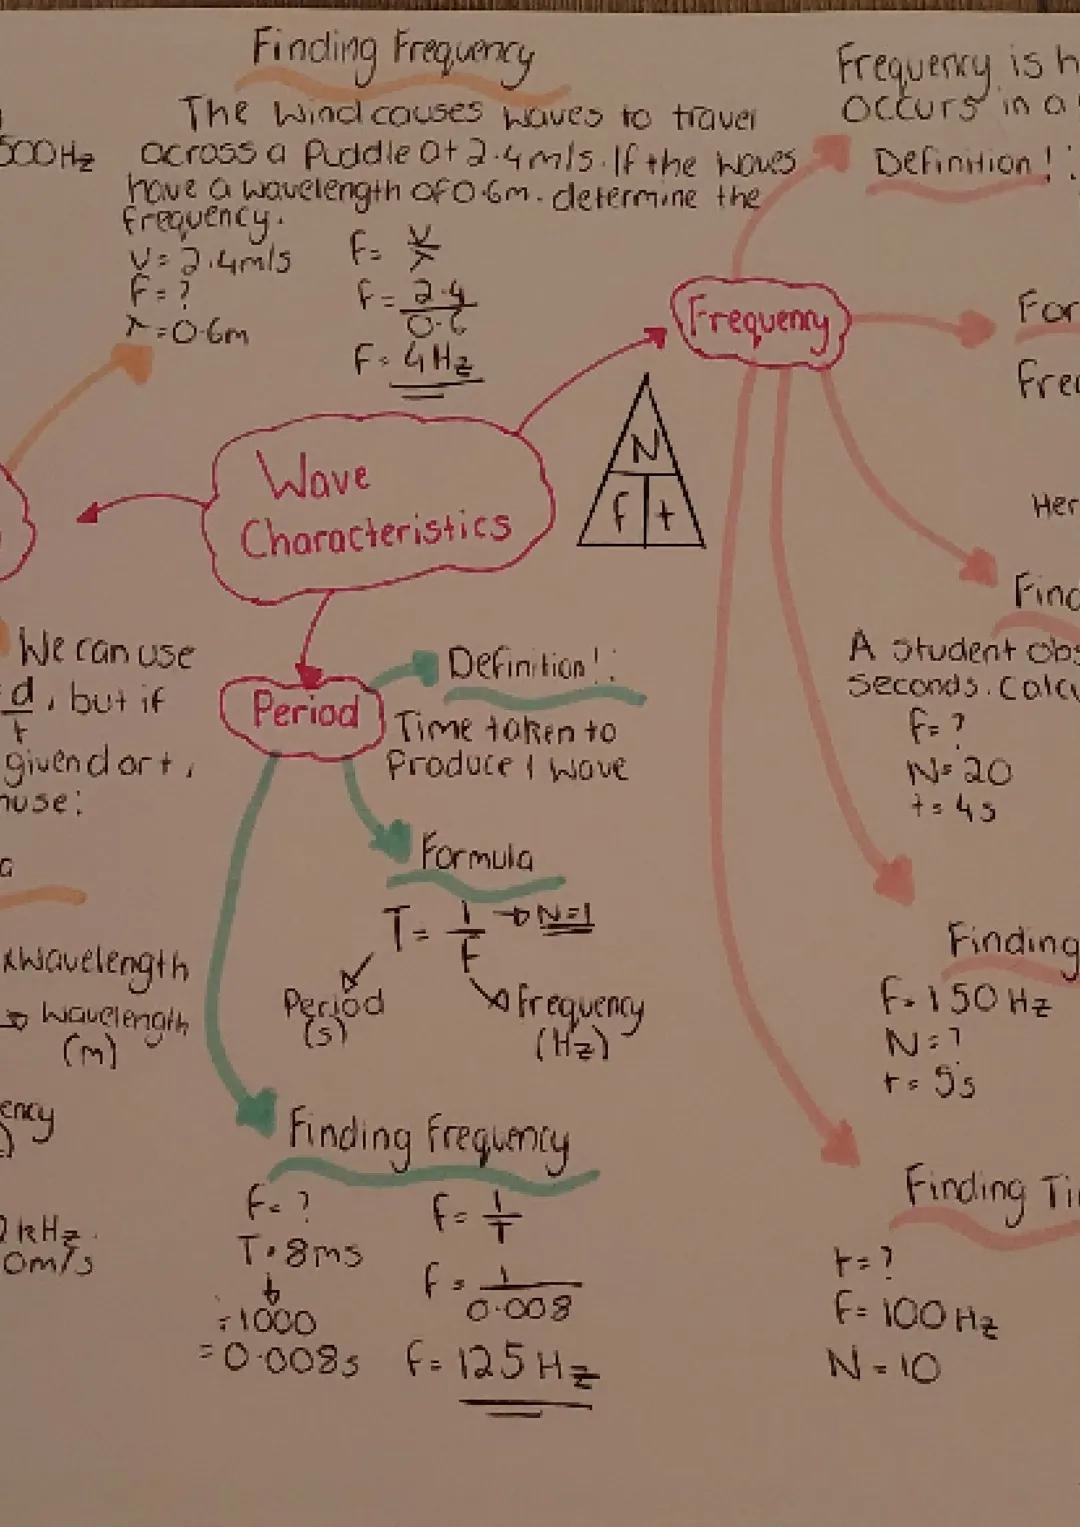 Finding Frequency
The Wind causes waves to travel
across a Puddle at 2.4m/s. If the waves
have a wavelength of 0.6m. determine the
frequency.
V= 2.4m/s
F= ?
λ=0.6m
F= V/λ
F= 2.4/0.6
F= 4Hz
500Hz
Frequency is h
occurs in a
Definition!:
Frequency
For
Fre
Her
N
f t
Wave
Characteristics
We can use
d/t, but if
given d or t,
use:
Period
Definition!:
Time taken to
Produce 1 wave
Formula
T= 1/F → N=1
Period
(s)
Frequency
(Hz)
xwavelength
→ wavelength
(m)
ency
kHz.
0m/s
Finding Frequency
F= ?
T= 8ms
÷1000
=0.008s
F= 1/T
F= 1/0.008
F= 125Hz
Find
A student obs
seconds. Calcu
F= ?
N= 20
t= 4s
Finding
F= 150Hz
N= ?
t= 5s
Finding Ti
t= ?
F= 100Hz
N = 10